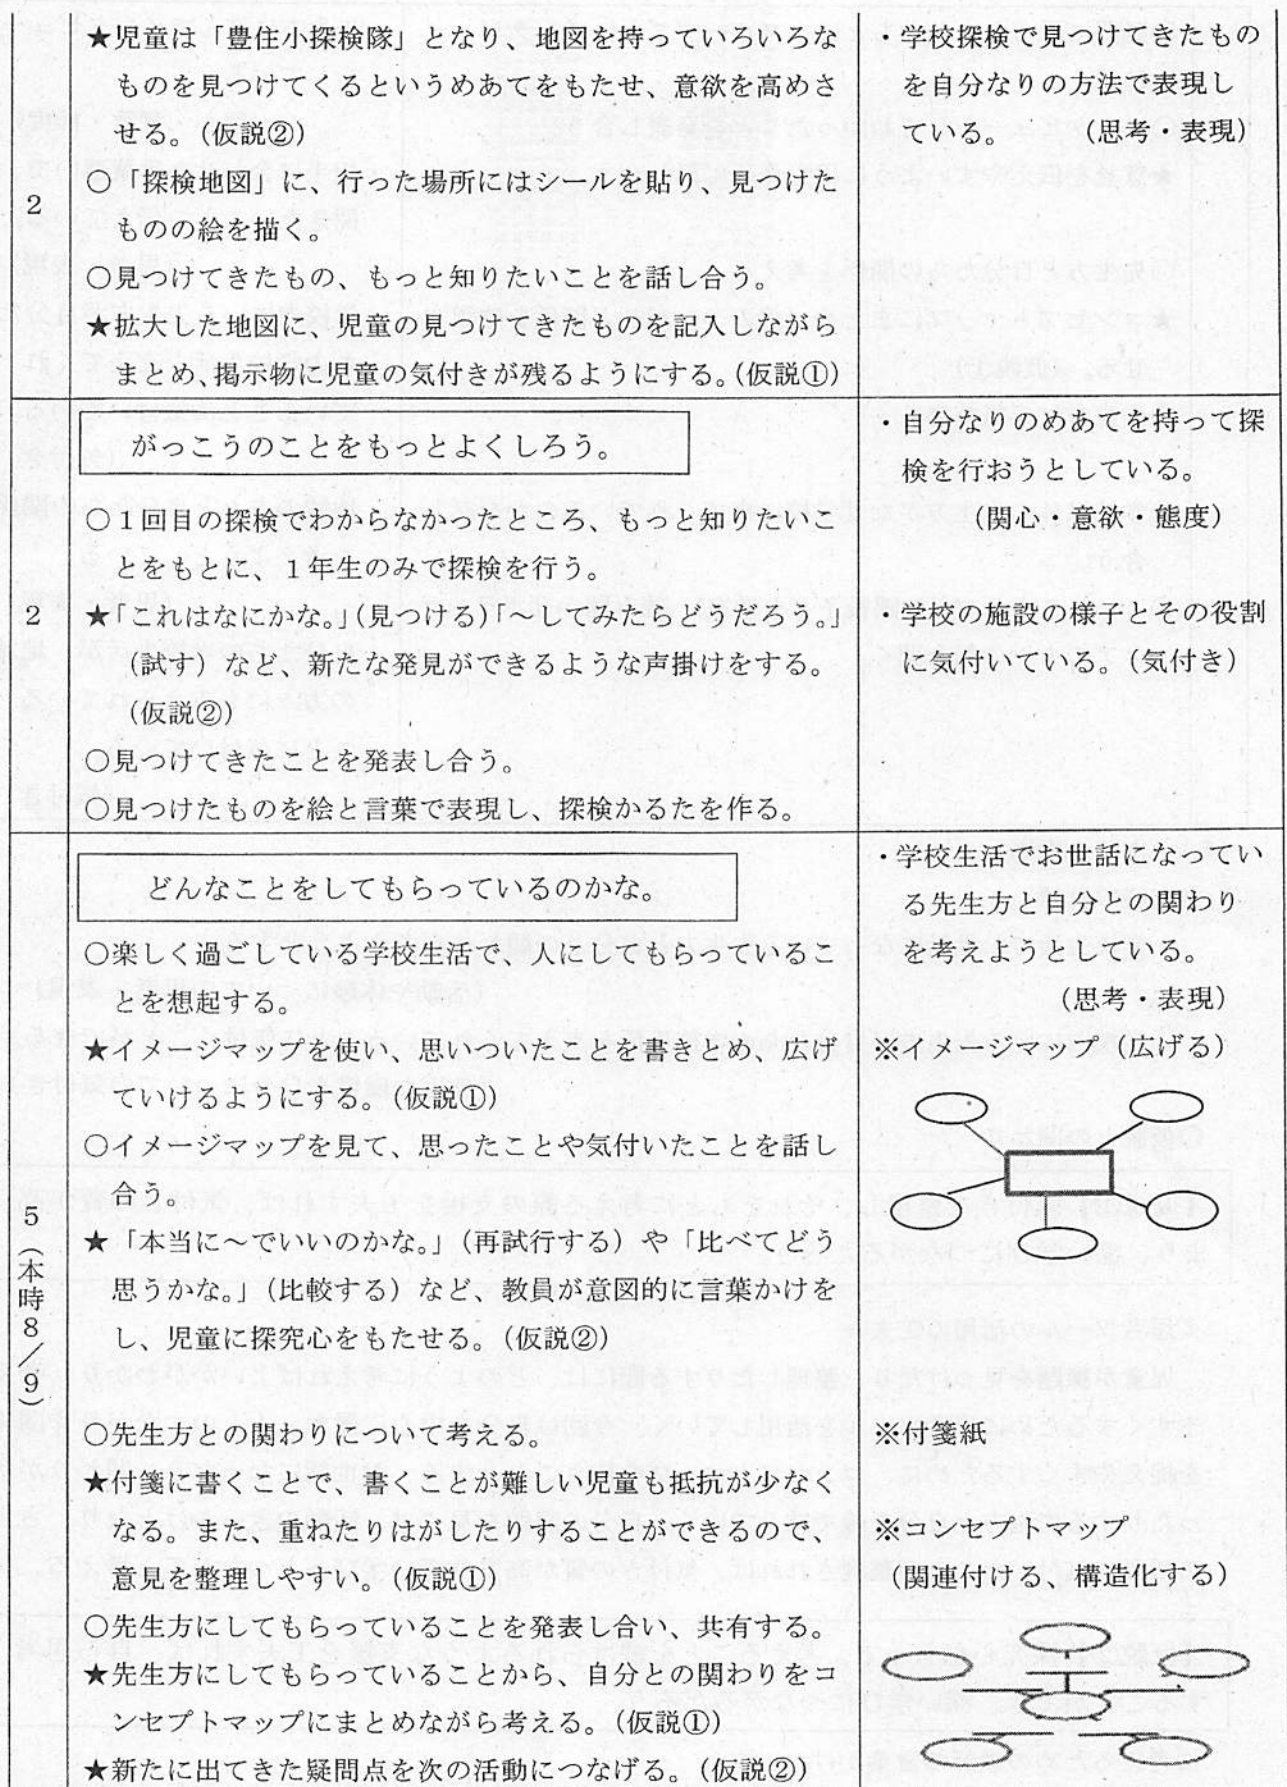 2
★児童は「豊住小探検隊」となり、地図を持っていろいろな
ものを見つけてくるというめあてをもたせ、意欲を高めさ
せる。(仮説②)
〇「探検地図」に、行った場所にはシールを貼り、見つけた
ものの絵を描く。
〇見つけてきたもの、もっと知りたいことを話し合う。
★拡大した地図に、児童の見つけてきたものを記入しながら
まとめ、掲示物に児童の気付きが残るようにする。(仮説①)
・学校探検で見つけてきたもの
を自分なりの方法で表現し
ている。 (思考・表現)
2
がっこうのことをもっとよくしろう。
〇1回目の探検でわからなかったところ、もっと知りたいこ
とをもとに、1年生のみで探検を行う。
★「これはなにかな。」(見つける)「～してみたらどうだろう。」
(試す)など、新たな発見ができるような声掛けをする。
(仮説②)
〇見つけてきたことを発表し合う。
〇見つけたものを絵と言葉で表現し、探検かるたを作る。
・自分なりのめあてを持って探
検を行おうとしている。
(関心・意欲・態度)
・学校の施設の様子とその役割
に気付いている。(気付き)
5(本時8/9)
どんなことをしてもらっているのかな。
〇楽しく過ごしている学校生活で、人にしてもらっているこ
とを想起する。
★イメージマップを使い、思いついたことを書きとめ、広げ
ていけるようにする。(仮説①)
〇イメージマップを見て、思ったことや気付いたことを話し
合う。
★「本当に～でいいのかな。」(再試行する)や「比べてどう
思うかな。」(比較する)など、教員が意図的に言葉かけを
し、児童に探究心をもたせる。(仮説②)
〇先生方との関わりについて考える。
★付箋に書くことで、書くことが難しい児童も抵抗が少なく
なる。また、重ねたりはがしたりすることができるので、
意見を整理しやすい。(仮説①)
〇先生方にしてもらっていることを発表し合い、共有する。
★先生方にしてもらっていることから、自分との関わりをコ
ンセプトマップにまとめながら考える。(仮説①)
★新たに出てきた疑問点を次の活動につなげる。(仮説②)
・学校生活でお世話になってい
る先生方と自分との関わり
を考えようとしている。
(思考・表現)
※イメージマップ(広げる)
※付箋紙
※コンセプトマップ
(関連付ける、構造化する)